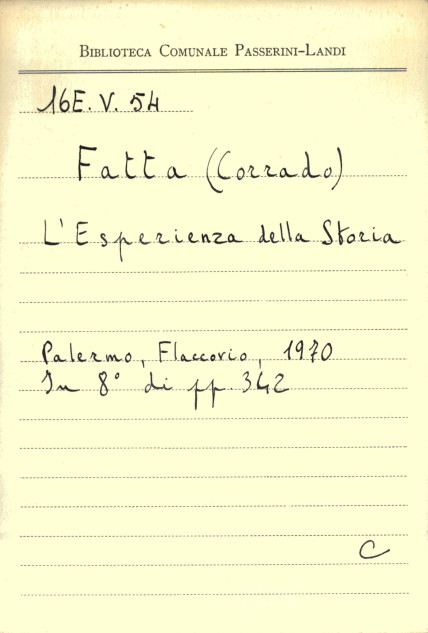 BIBLIOTECA COMUNALE PASSERINI-LANDI
16E. V. 54
Fatta (Corrado)
L'Esperienza della Storia
Palermo, Flaccovio, 1970
In 8° di pp. 342
C